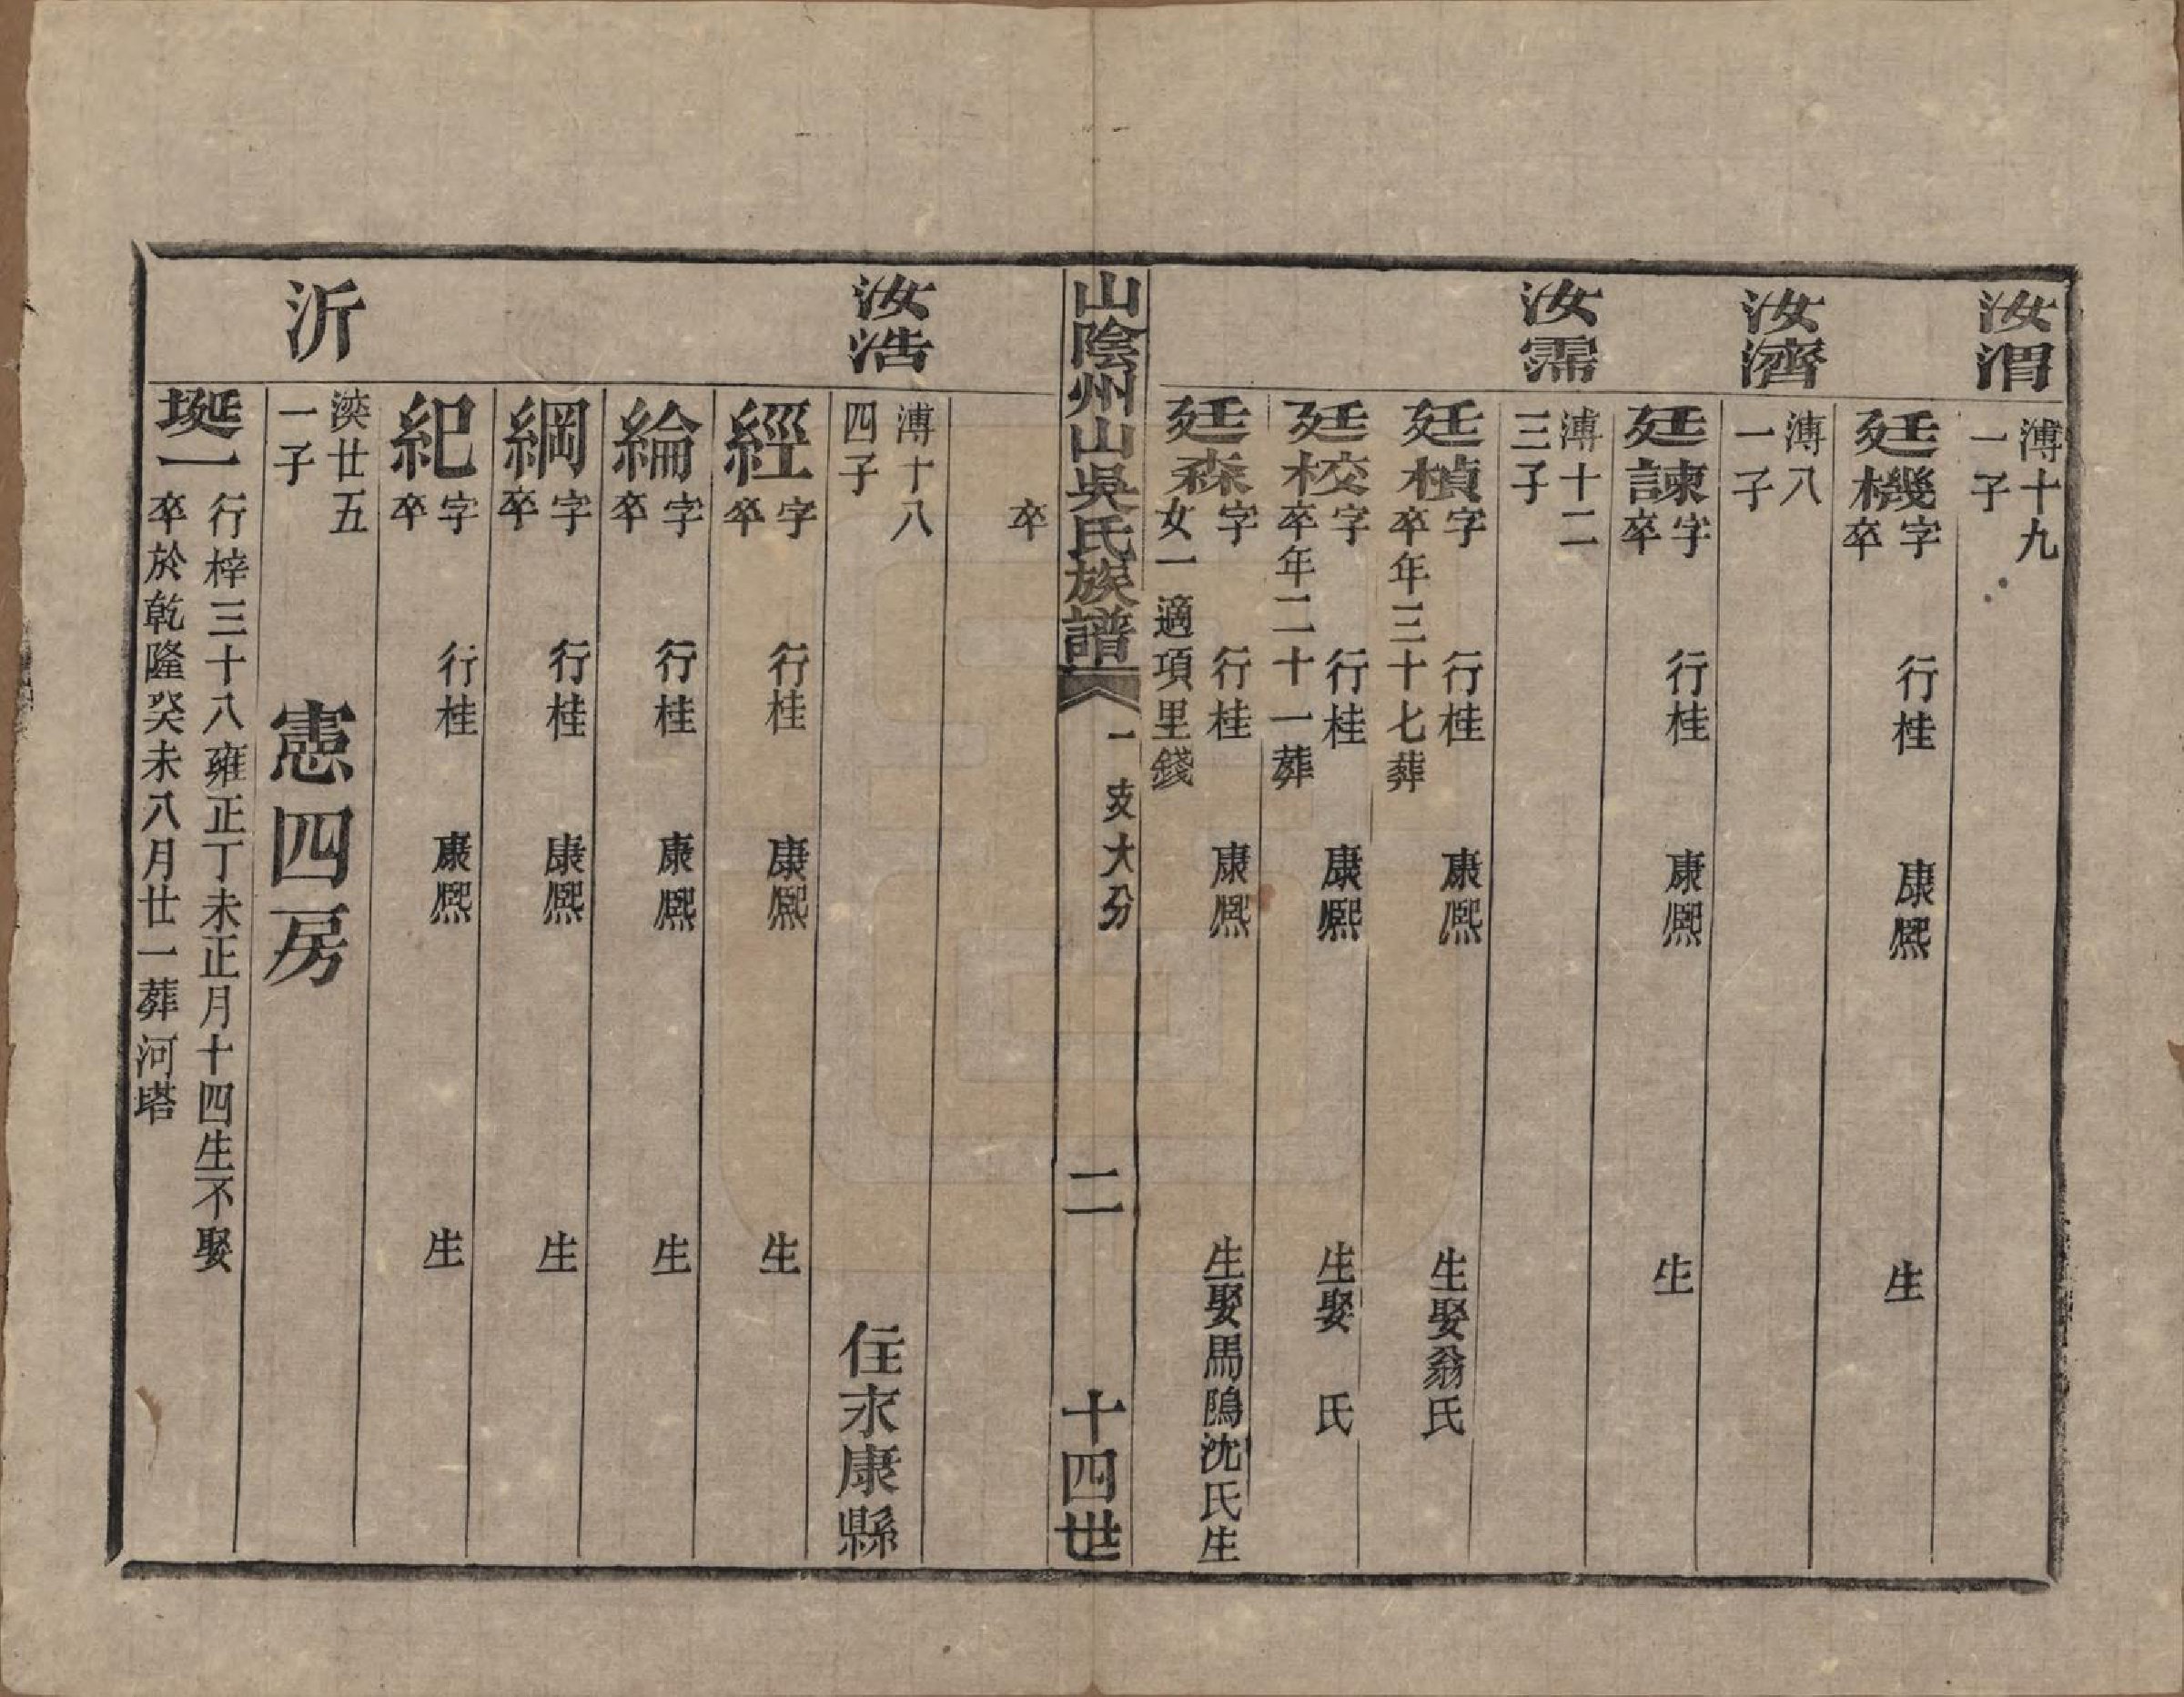 汝渭
溥十九
一子
廷機
字 行桂 康熙 生
卒
汝濟
溥八
一子
廷諫
字 行桂 康熙 生
卒
汝霈
溥十二
三子
廷楨
字 行桂 康熙 生娶翁氏
卒年三十七葬
廷校
字 行桂 康熙 生娶 氏
卒年二十一葬
廷森
字 行桂 康熙 生娶馬鴋沈氏生
女一適項里錢
山陰州山吳氏族譜 一支大分 二 十四世
卒
汝浩
溥十八
四子
住永康縣
經
字 行桂 康熙 生
卒
綸
字 行桂 康熙 生
卒
綱
字 行桂 康熙 生
卒
紀
字 行桂 康熙 生
卒
沂
湙廿五
一子
憲四房
埏一
行梓三十八雍正丁未正月十四生不娶
卒於乾隆癸未八月廿一葬河塔